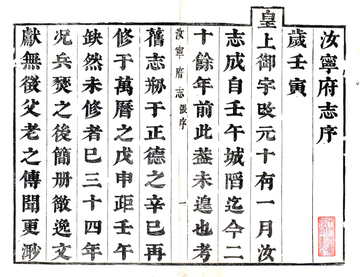 汝寧府志序
歲壬寅
皇上御宇改元十有一月汝
志成自壬午城陷迄今二
十餘年前此葢未遑也考
汝寧府志 序 一
舊志刱于正德之辛巳再
修于萬曆之戊申距壬午
缺然未修者巳三十四年
況兵燹之後簡册微逸文
獻無徵父老之傳聞更渺